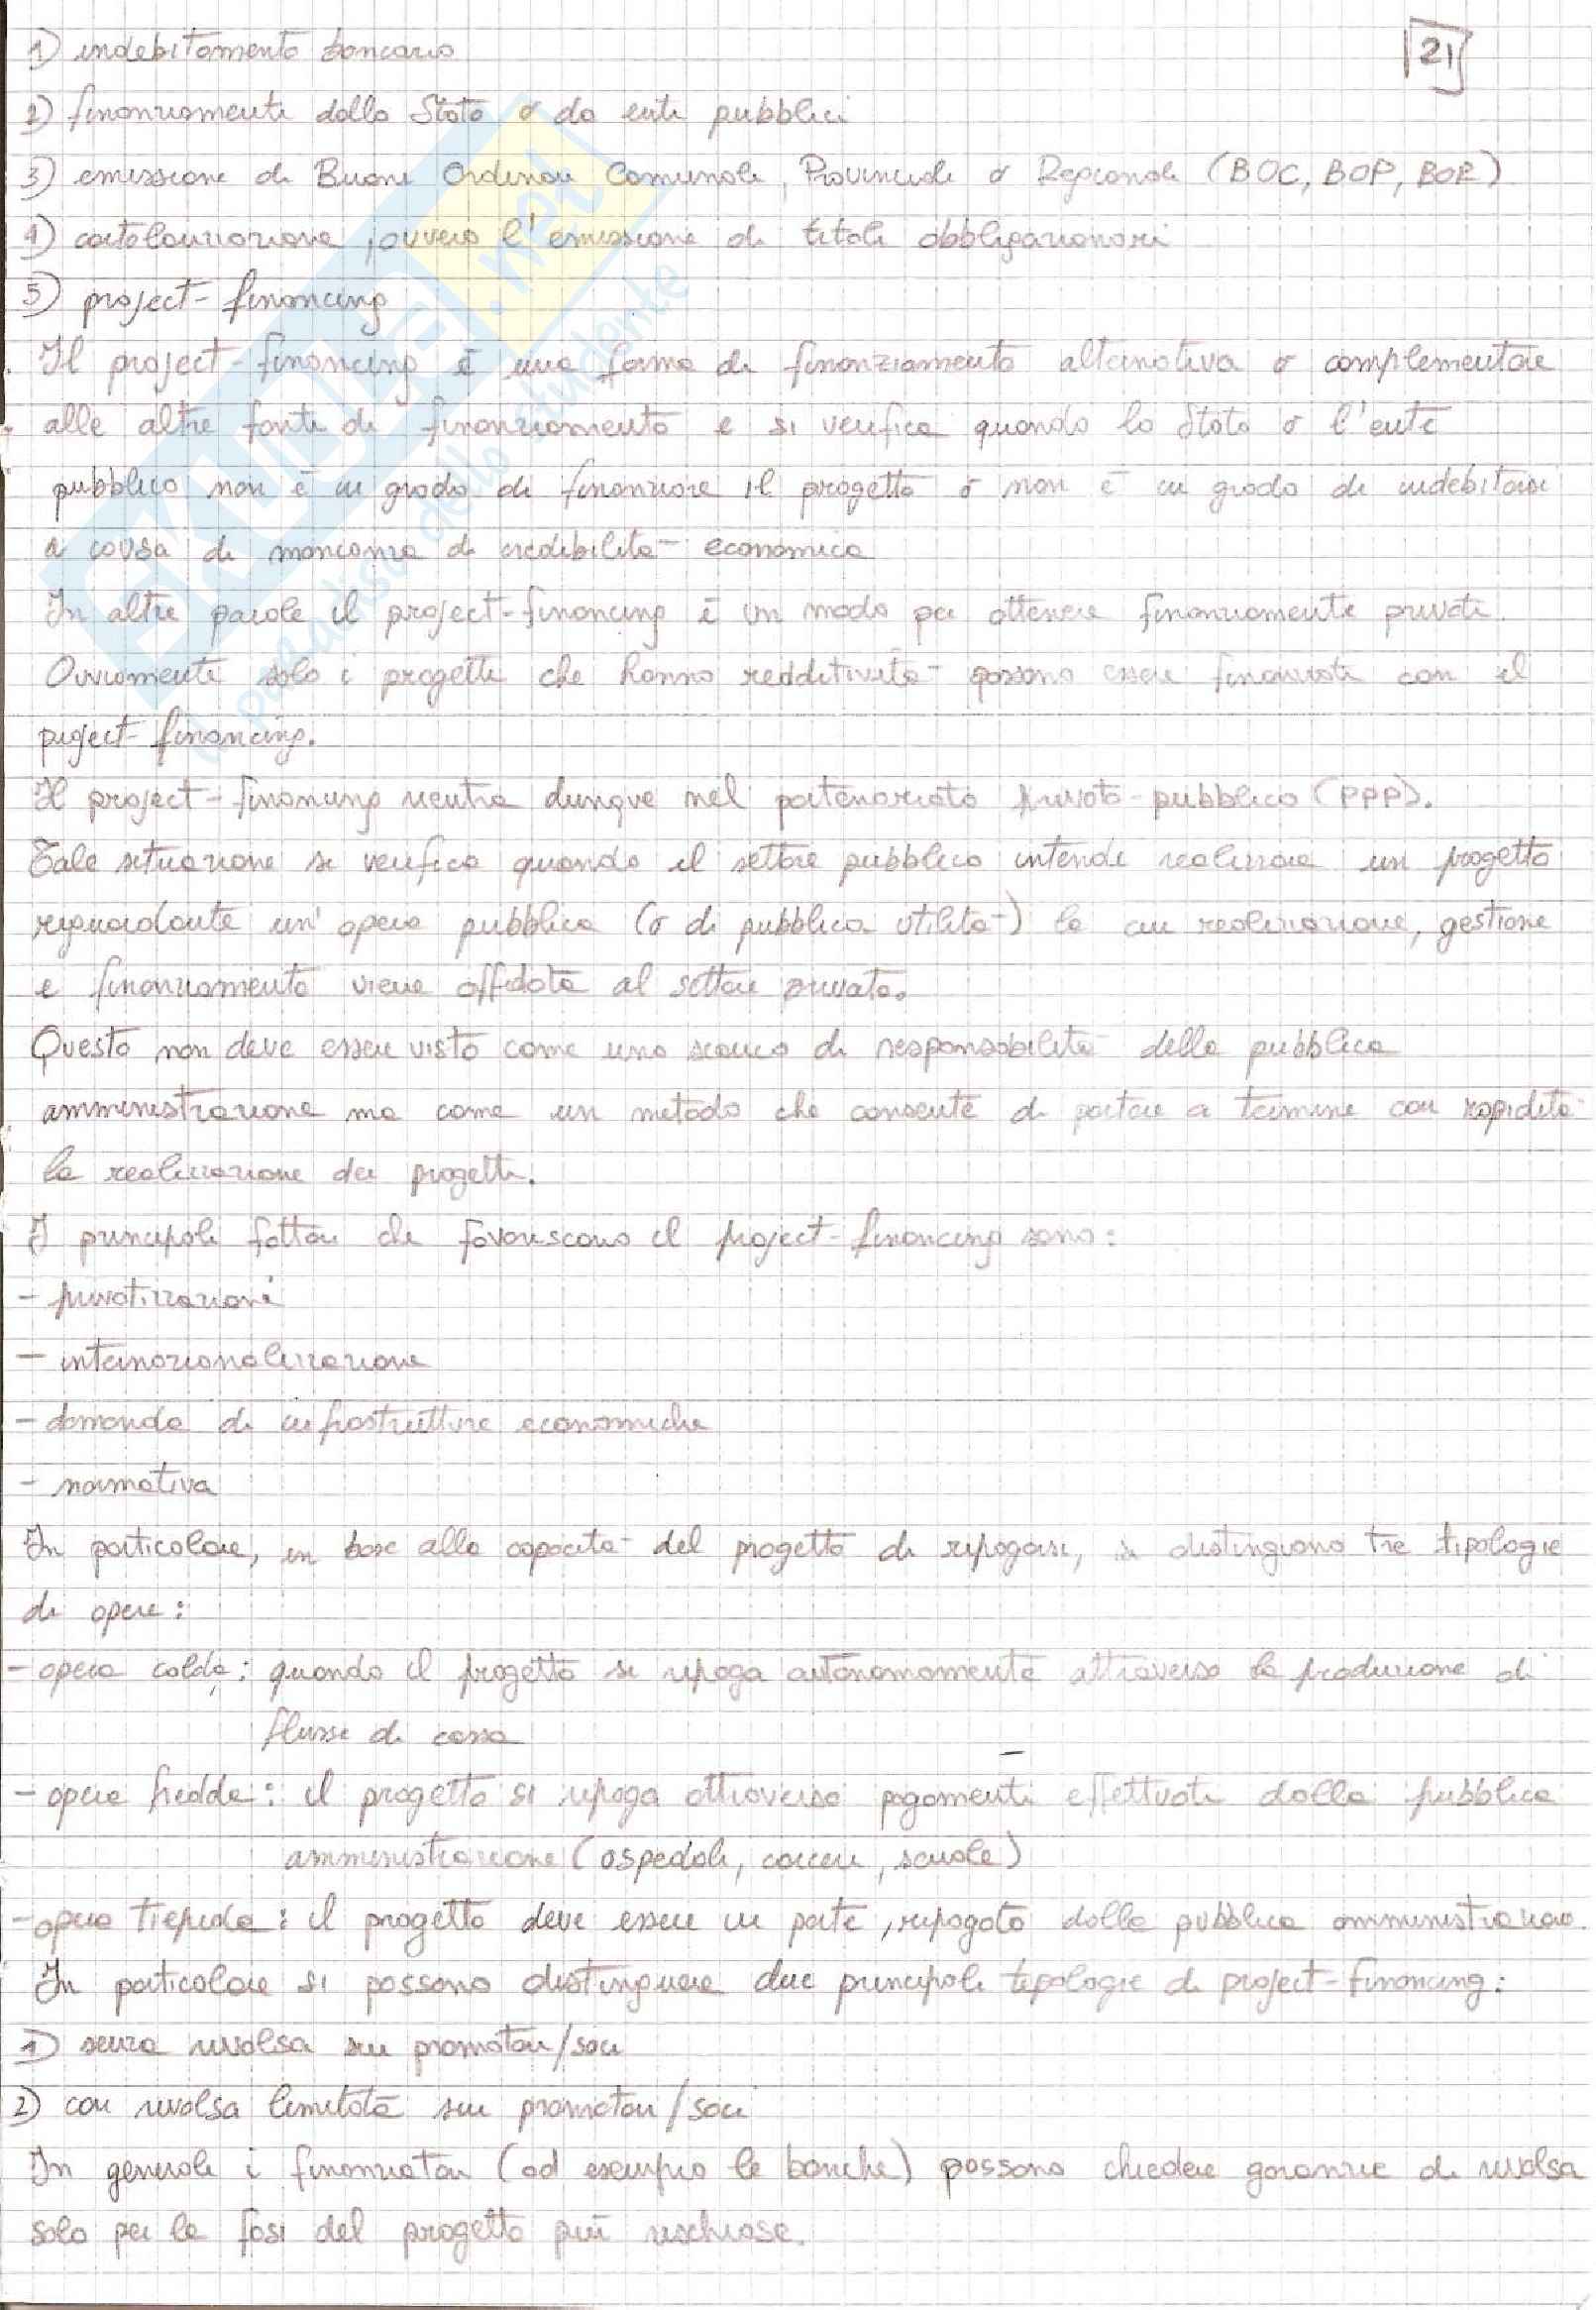 21
1) indebitamento bancario
2) finanziamenti dallo Stato o da enti pubblici
3) emissione di Buoni Ordinari Comunali, Provinciali o Regionali (BOC, BOP, BOR)
4) cartolarizzazione, ovvero l'emissione di titoli obbligazionari
5) project-financing
Il project-financing è una forma di finanziamento alternativa o complementare
alle altre fonti di finanziamento e si verifica quando lo Stato o l'ente
pubblico non è in grado di finanziare il progetto o non è in grado di indebitarsi
a causa di mancanza di credibilità economica
In altre parole il project-financing è un modo per ottenere finanziamenti privati.
Ovviamente solo i progetti che hanno redditività possono essere finanziati con il
project-financing.
Il project-financing rientra dunque nel partenariato privato-pubblico (PPP).
Tale situazione si verifica quando il settore pubblico intende realizzare un progetto
riguardante un'opera pubblica (o di pubblica utilità) la cui realizzazione, gestione
e finanziamento viene affidata al settore privato.
Questo non deve essere visto come uno scarico di responsabilità della pubblica
amministrazione ma come un metodo che consente di portare a termine con rapidità
la realizzazione dei progetti.
I principali fattori che favoriscono il project-financing sono:
- privatizzazioni
- internazionalizzazione
- domanda di infrastrutture economiche
- normativa
In particolare, in base alla capacità del progetto di ripagarsi, si distinguono tre tipologie
di opere:
- opera calda: quando il progetto si ripaga autonomamente attraverso la produzione di
flussi di cassa
- opera fredda: il progetto si ripaga attraverso pagamenti effettuati dalla pubblica
amministrazione (ospedali, carceri, scuole)
- opera tiepida: il progetto deve essere in parte, ripagato dalla pubblica amministrazio.
In particolare si possono distinguere due principali tipologie di project-financing:
1) senza rivalsa sui promotori/soci
2) con rivalsa limitata sui promotori/soci
In generale i finanziatori (ad esempio le banche) possono chiedere garanzie di rivalsa
solo per le fasi del progetto più rischiose.
SKUOLA.net
il paradiso dello studente